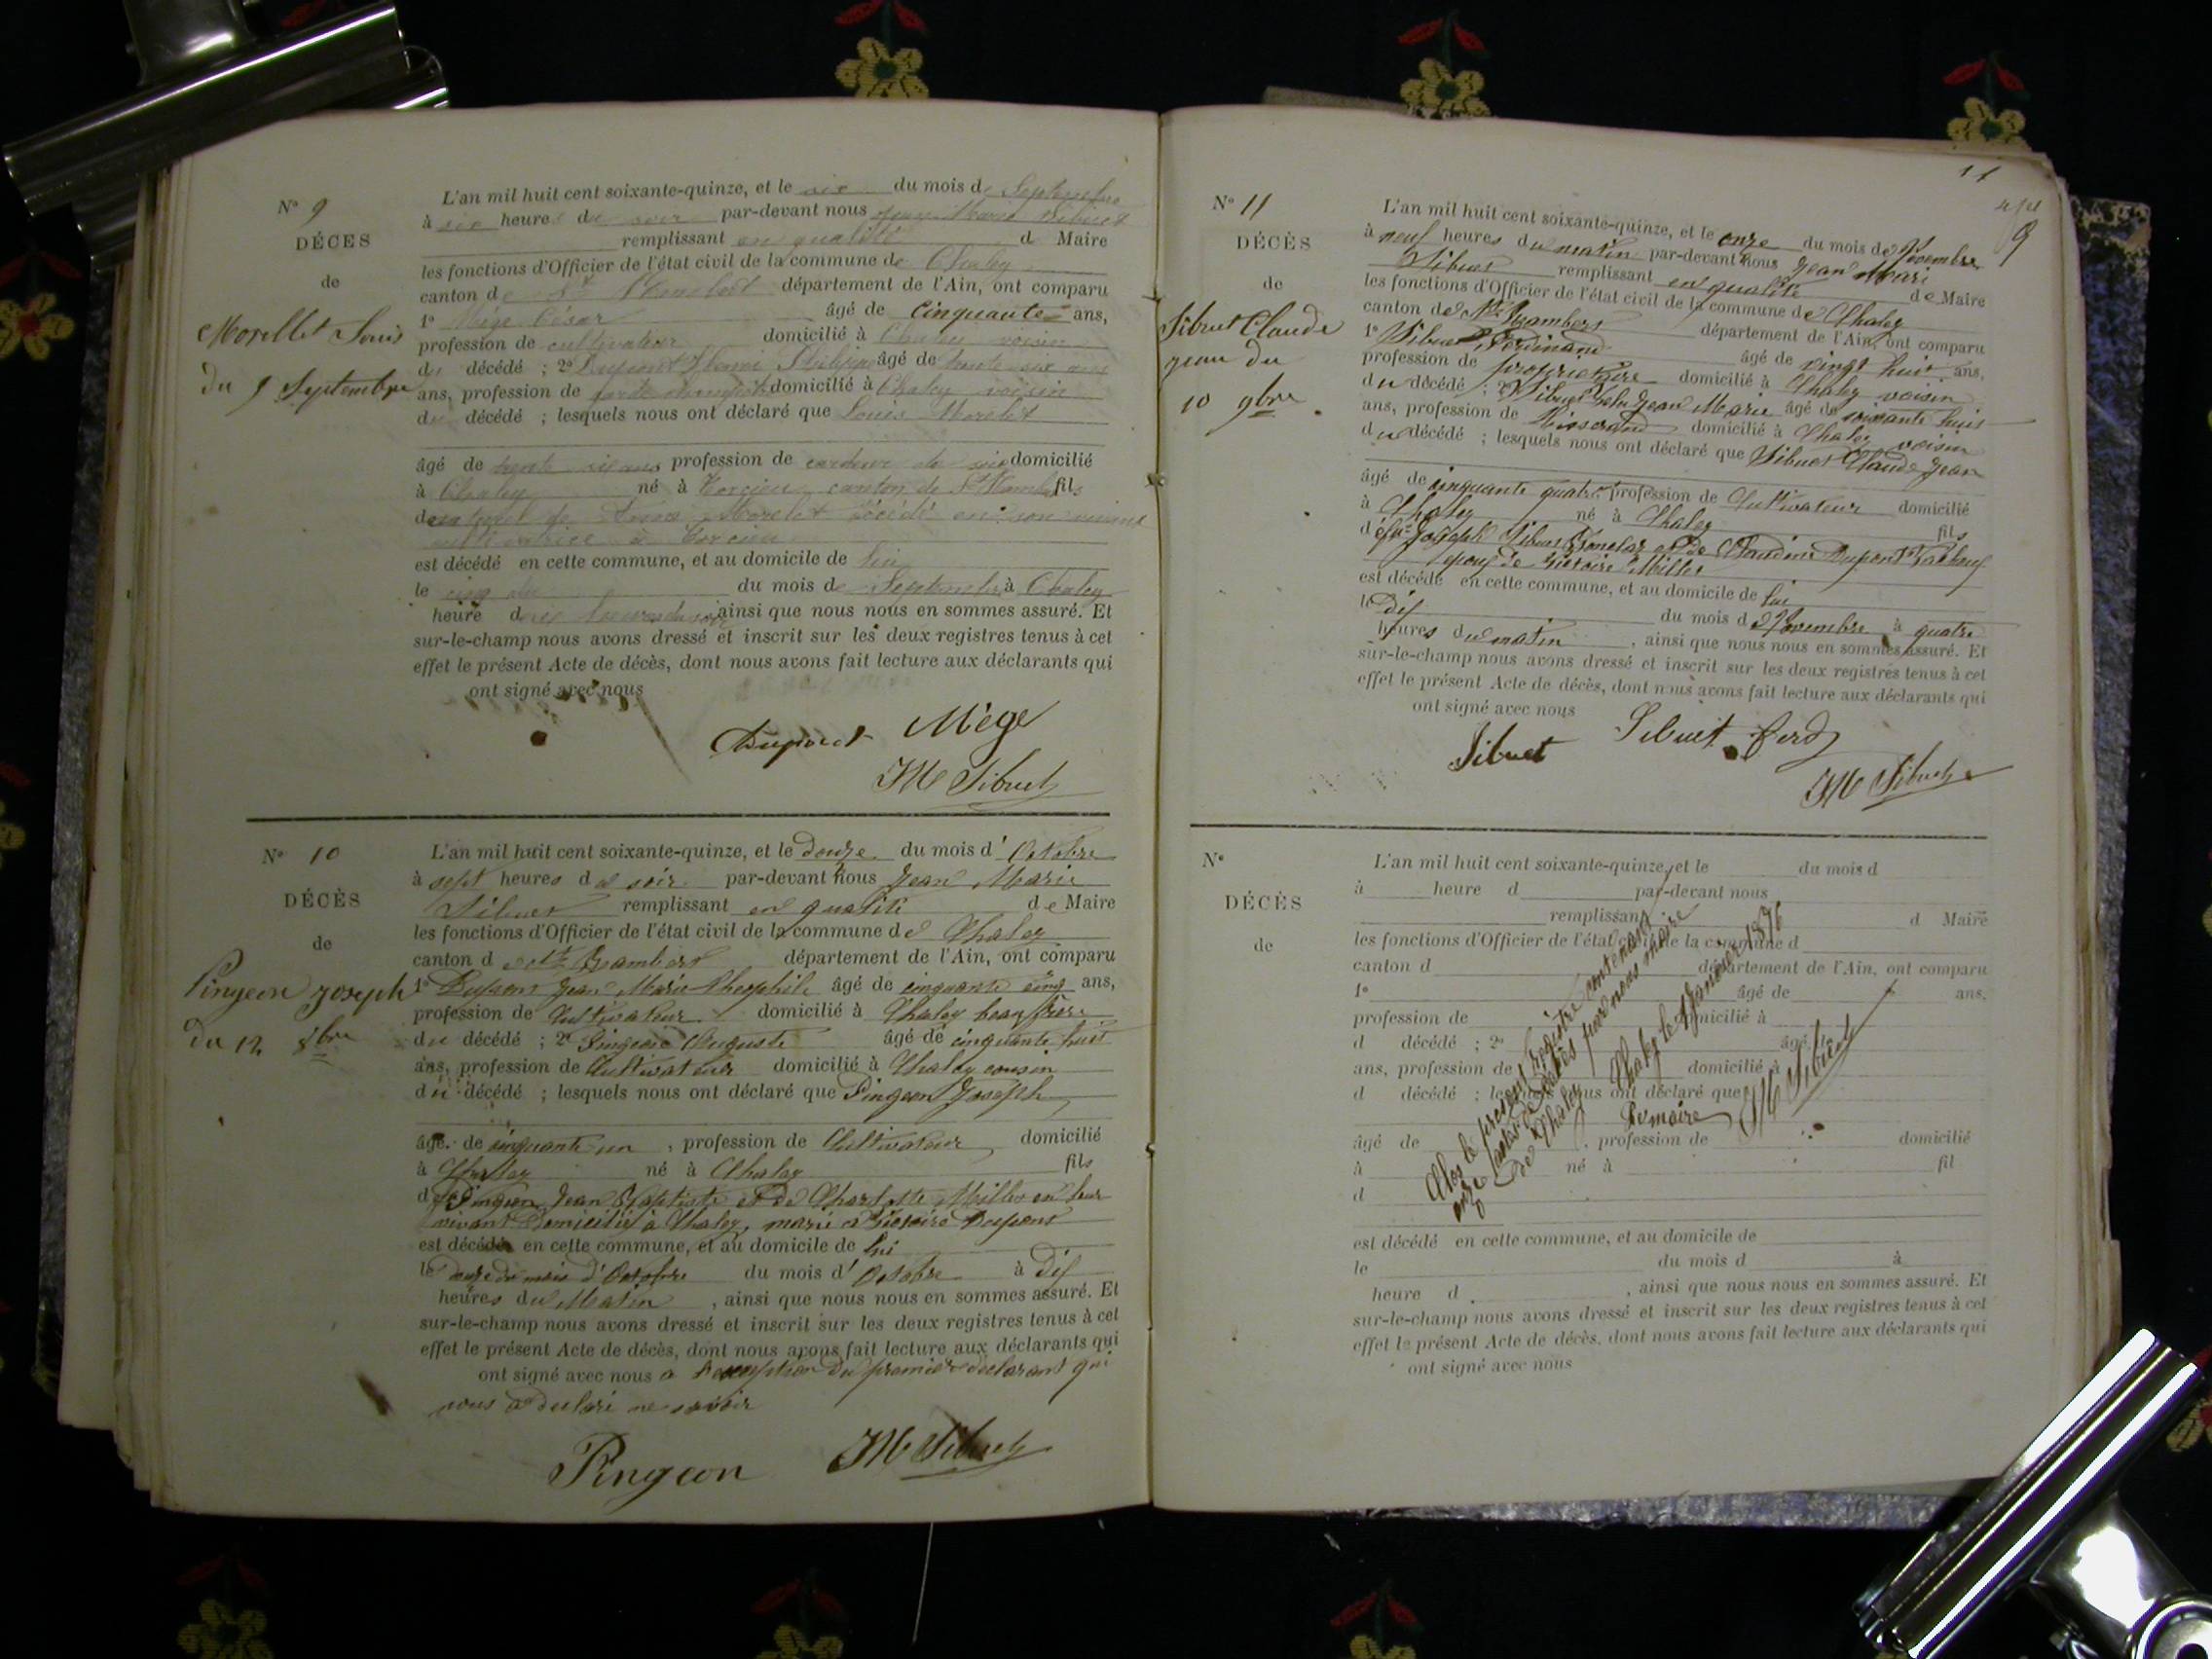 N° 9
DÉCES
de
Morellet Louis
du 5 Septembre
L'an mil huit cent soixante-quinze, et le six du mois de Septembre
à six heures du soir par-devant nous Jean Marie Sibuet
remplissant en qualité d Maire
les fonctions d'Officier de l'état civil de la commune de Chaley
canton de St Rambert département de l'Ain, ont comparu
1° Mège César âgé de Cinquante ans,
profession de cultivateur domicilié à Chaley voisin
du décédé ; 2° Dupont Philippe âgé de trente six ans
ans, profession de domicilié à Chaley voisin
du décédé ; lesquels nous ont déclaré que Louis Morelet
âgé de trente six ans profession de cardeur de soie domicilié
à Chaley né à Torcieu canton de St Rambt fils
de naturel de Morelet décédé en son vivant
à Torcieu
est décédé en cette commune, et au domicile de lui
le cinq du mois de Septembre à Chaley
heure d heures du soir ainsi que nous nous en sommes assuré. Et
sur-le-champ nous avons dressé et inscrit sur les deux registres tenus à cet
effet le présent Acte de décès, dont nous avons fait lecture aux déclarants qui
ont signé avec nous
Dupont Mège
JM Sibuet
N° 10
DÉCÈS
de
Pingeon Joseph
du 12 8bre
L'an mil huit cent soixante-quinze, et le douze du mois d' Octobre
à sept heures du soir par-devant nous Jean Marie
Sibuet remplissant en qualité de Maire
les fonctions d'Officier de l'état civil de la commune de Chaley
canton d e St Rambert département de l'Ain, ont comparu
1° Dupont Jean Marie Theophile âgé de cinquante cinq ans,
profession de Cultivateur domicilié à Chaley beau frère
du décédé ; 2° Pingeon Auguste âgé de cinquante huit
ans, profession de Cultivateur domicilié à Chaley cousin
du décédé ; lesquels nous ont déclaré que Pingeon Joseph
âgé de cinquante un , profession de Cultivateur domicilié
à Chaley né à Chaley fils
de Pingeon Jean Baptiste et de Charlotte Millet en leur
vivant domiciliés à Chaley, marié a Victoire Dupont
est décédé en cette commune, et au domicile de lui
le douze du mois d'Octobre du mois d' Octobre à Dix
heures du Matin , ainsi que nous nous en sommes assuré. Et
sur-le-champ nous avons dressé et inscrit sur les deux registres tenus à cet
effet le présent Acte de décès, dont nous avons fait lecture aux déclarants qui
ont signé avec nous a l'exception du premier déclarant qui
nous a déclaré ne savoir
Pingeon JM Sibuet
11
9
N° 11
DÉCÈS
de
Sibuet Claude
Jean du
10 9bre
L'an mil huit cent soixante-quinze, et le onze du mois de Novembre
à neuf heures du matin par-devant nous Jean Mari
Sibuet remplissant en qualité de Maire
les fonctions d'Officier de l'état civil de la commune de Chaley
canton de St Rambert département de l'Ain, ont comparu
1° Sibuet Ferdinand âgé de vingt huit ans,
profession de propriétaire domicilié à Chaley voisin
du décédé ; 2° Sibuet Jean Marie âgé de soixante huit
ans, profession de Tisserand domicilié à Chaley voisin
du décédé ; lesquels nous ont déclaré que Sibuet Claude Jean
âgé de cinquante quatre profession de Cultivateur domicilié
à Chaley né à Chaley fils
de Joseph Sibuet et de Claudine Dupont
époux de Victoire Millet
est décédé en cette commune, et au domicile de lui
le Dix du mois de Novembre à quatre
heures du matin , ainsi que nous nous en sommes assuré. Et
sur-le-champ nous avons dressé et inscrit sur les deux registres tenus à cet
effet le présent Acte de décès, dont nous avons fait lecture aux déclarants qui
ont signé avec nous
Sibuet Sibuet ferd
JM Sibuet
N°
DÉCÈS
de
L'an mil huit cent soixante-quinze, et le du mois d
à heure d par-devant nous
remplissant d Maire
les fonctions d'Officier de l'état civil de la commune d
canton d département de l'Ain, ont comparu
1° âgé de ans,
profession de domicilié à
d décédé ; 2° âgé de
ans, profession de domicilié à
d décédé ; lesquels nous ont déclaré que
âgé de , profession de domicilié
à né à fil
d
est décédé en cette commune, et au domicile de
le du mois d à
heure d , ainsi que nous nous en sommes assuré. Et
sur-le-champ nous avons dressé et inscrit sur les deux registres tenus à cet
effet le présent Acte de décès, dont nous avons fait lecture aux déclarants qui
ont signé avec nous
Clos le présent registre contenant
onze actes de décès par nous maire
de Chaley Chaley le 1 Janvier 1876
Le maire JM Sibuet